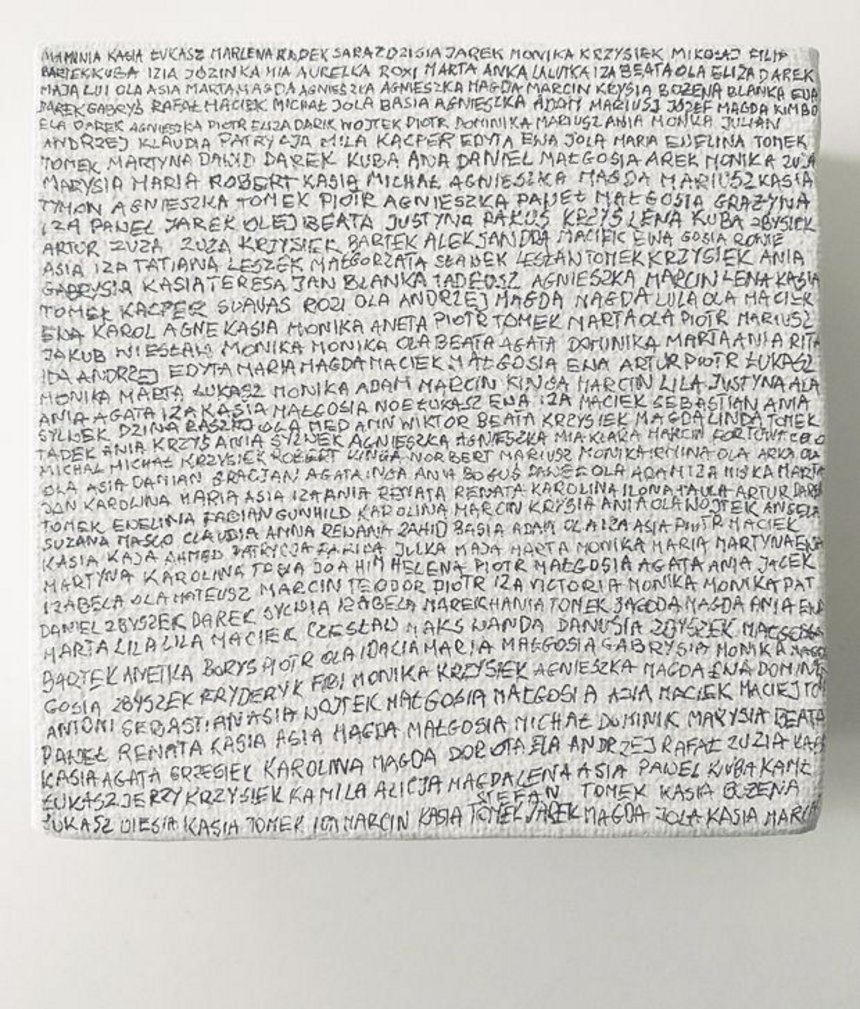 KASIA ŁUKASZ MARLENA RADEK SARA ZDZISIA JAREK MONIKA KRZYSIEK MIKOŁAJ FILIP
BARTEK KUBA IZIA JÓZINKA MIA AURELKA ROXI MARTA ANKA LALUTKA IZA BEATA OLA ELIZA DAREK
MAJA LUI OLA ASIA MARTA MAGDA AGNIESZKA AGNIESZKA MAGDA MARCIN KRYSIA BOŻENA BLANKA EWA
DAREK GABRYŚ RAFAŁ MACIEK MICHAŁ JOLA BASIA AGNIESZKA ADAM MARIUSZ JÓZEF MAGDA KIMBO
ELA DAREK AGNIESZKA PIOTR ELIZA DARIK WOJTEK PIOTR DOMINIKA MARIUSZ ANIA MONIKA JULIAN
ANDRZEJ KLAUDIA PATRYCJA MILA KACPER EDYTA EWA JOLA MARIA EWELINA TOMEK
TOMEK MARTYNA DAWID DAREK KUBA ANA DANIEL MAŁGOSIA AREK MONIKA ZUZA
MARYSIA MARIA ROBERT KASIA MICHAŁ AGNIESZKA MAGDA MARIUSZ KASIA
TYMON AGNIESZKA TOMEK PIOTR AGNIESZKA PAWEŁ MAŁGOSIA GRAŻYNA
IZA PAWEL JAREK OLEJ BEATA JUSTYNA PAKUS KRZYŚ LENA KUBA ZBYSIEK
ARTUR ZUZA ZUZA KRZYSIEK BARTEK ALEKSANDRA MACIEK EWA GOSIA
ASIA IZA TATIANA LESZEK MAŁGORZATA SŁAWEK LESZAN TOMEK KRZYSIEK ANIA
GABRYSIA KASIA TERESA JAN BLANKA TADEUSZ AGNIESZKA MARCIN LENA KASIA
TOMEK KACPER ROZI OLA ANDRZEJ MAGDA MAGDA LULA OLA MACIEK
EWA KAROL AGNE KASIA MONIKA ANETA PIOTR TOMEK MARTA OLA PIOTR MARIUSZ
JAKUB WIESŁAW MONIKA MONIKA OLA BEATA AGATA DOMINIKA MARTA ANIA RITA
IDA ANDRZEJ EDYTA MARIA MAGDA MACIEK MAŁGOSIA EWA ARTUR PIOTR ŁUKASZ
MONIKA MARTA ŁUKASZ MONIKA ADAM MARCIN KINGA MARCIN LILA JUSTYNA ALA
ANIA AGATA IZA KASIA MAŁGOSIA NOE ŁUKASZ EWA IZA MACIEK SEBASTIAN ANIA
SYLWEK DZINA OLA MED ANN WIKTOR BEATA KRZYSIEK MAGDA LINDA TOMEK
TADEK ANIA KRZYŚ ANIA SYLWEK AGNIESZKA AGNIESZKA MIA KLARA MARCIN
MICHAŁ MICHAŁ KRZYSIEK ROBERT KINGA NORBERT MARIUSZ MONIKA OLA
OLA ASIA DAMIAN GRACJAN AGATA INGA ANIA BOGUŚ PAWEŁ OLA ADAM IZA MARTA
JAN KAROLINA MARIA ASIA IZA ANIA RENATA RENATA KAROLINA ILONA PAULA ARTUR DAREK
TOMEK EWELINA FABIAN GUNHILD KAROLINA MARCIN KRYSIA ANIA OLA WOJTEK ANGELA
SUZANA CLAUDIA ANNA ZAHID BASIA ADAM OLA IZA ASIA PIOTR MACIEK
KASIA KAJA AHMED PATRYCJA JULKA MAJA MARTA MONIKA MARIA MARTYNA EWA
MARTYNA KAROLINA JOAHIM HELENA PIOTR MAŁGOSIA AGATA ANIA JACEK
IZABELA OLA MATEUSZ MARCIN TEODOR PIOTR IZA VICTORIA MONIKA MONIKA PAT
DANIEL ZBYSZEK DAREK SYLWIA IZABELA MAREK HANIA TOMEK JAGODA MAGDA ANIA EWA
MARTA LILA LILA MACIEK CZESŁAW MAKS WANDA DANUSIA ZBYSZEK MAŁGOSIA
BARTEK ANETKA BORYS PIOTR OLA IDALIA MARIA MAŁGOSIA GABRYSIA MONIKA MAGDA
GOSIA ZBYSZEK FRYDERYK FIFI MONIKA KRZYSIEK AGNIESZKA MAGDA EWA DOMINIK
ANTONI SEBASTIAN ASIA WOJTEK MAŁGOSIA MAŁGOSIA ASIA MACIEK MACIEJ TOM
PAWEŁ RENATA KASIA ASIA MAGDA MAŁGOSIA MICHAŁ DOMINIK MARYSIA BEATA
KASIA AGATA GRZESIEK KAROLINA MAGDA DOROTA ELA ANDRZEJ RAFAŁ ZUZIA
ŁUKASZ JERZY KRZYSIEK KAMILA ALICJA MAGDALENA ASIA PAWEL KUBA KAMIL
STEFAN TOMEK KASIA BOŻENA
ŁUKASZ KASIA TOMEK IZA MARCIN KASIA TOMEK JAREK MAGDA JOLA KASIA MARIA